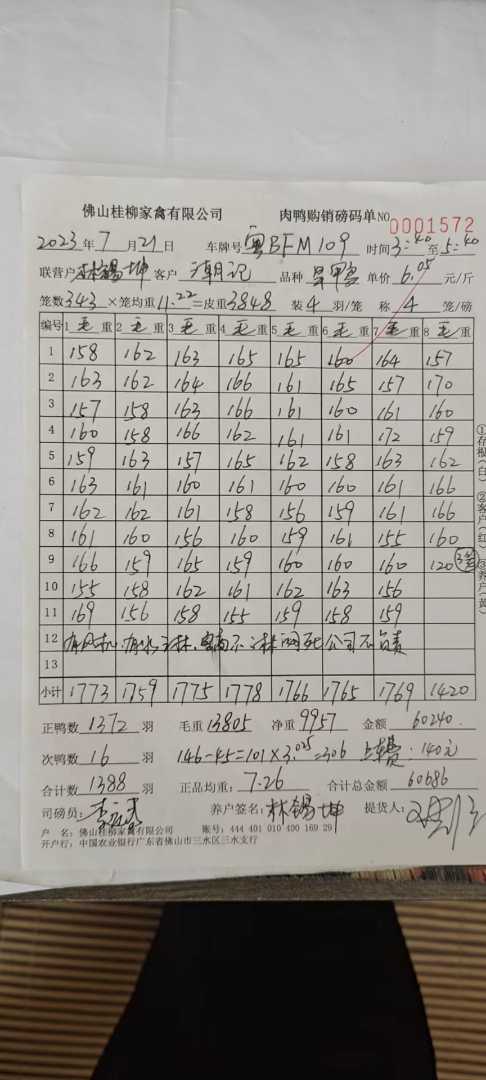 佛山桂柳家禽有限公司 肉鸭购销磅码单 NO 0001572
2023年7月21日 车牌号 粤BFM109 时间3:40至5:40
联营户 林锡坤 客户 潮记 品种 单价 6.05 元/斤
笼数343×笼均重11.22=皮重3848 装4羽/笼 称4笼/磅
编号 1毛重 2毛重 3毛重 4毛重 5毛重 6毛重 7毛重 8毛重
1 158 162 163 165 165 160 164 157
2 163 162 164 166 161 165 157 170
3 157 158 163 166 161 160 161 160
4 160 158 166 162 161 161 172 159
5 159 163 157 165 162 158 163 162
6 163 161 160 161 160 160 161 166
7 162 162 161 158 156 159 161 166
8 161 160 156 160 159 161 155 160
9 166 159 165 159 160 160 160 120 3笼
10 155 158 162 161 162 163 156
11 169 156 158 155 159 158 159
12 有风机,有水淋,不淋闷死公司不负责
13
小计 1773 1759 1775 1778 1766 1765 1769 1420
正鸭数1372羽 毛重13805 净重9957 金额60240.
次鸭数16羽 146-45=101×3.025=306 上费:140元
合计数1388羽 正品均重:7.26 合计总金额60686
司磅员: 养户签名:林锡坤 提货人:
户 名:佛山桂柳家禽有限公司 账号:444 401 010 400 169 29
开户行:中国农业银行广东省佛山市三水区三水支行
①存根(白) ②客户(红) ③养户(黄)